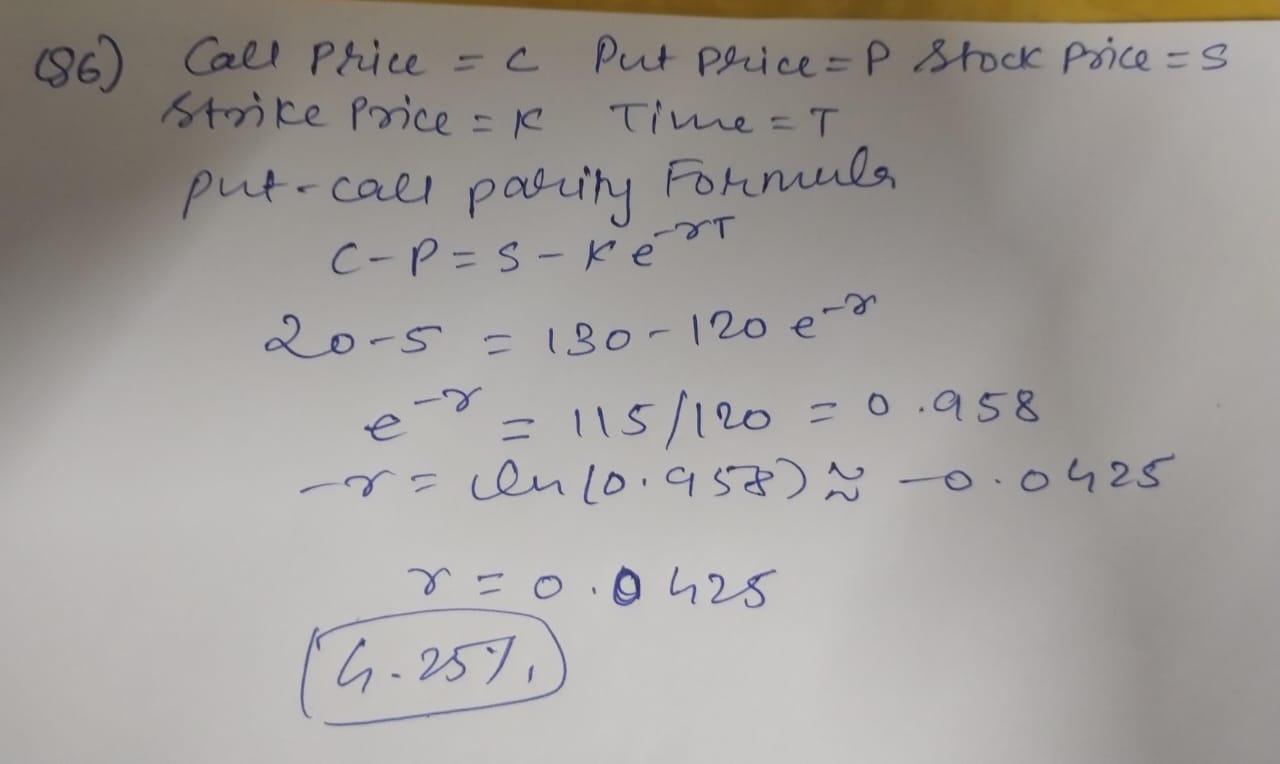 (86) Call Price = C Put Price = P Stock Price = S
Strike Price = K Time = T
Put-call parity Formula
C-P = S - Ke^-rT
20-5 = 130-120 e^-r
e^-r = 115/120 = 0.958
-r = ln(0.958) ≈ -0.0425
r = 0.0425
4.25%